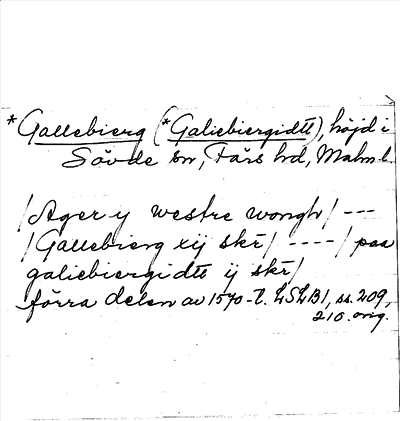 *Gallebierg (*Galiebiergidtt), höjd i
Sövde sn, Färs hd, Malm l.
/Ager y westre wongh/ ---
/Gallebierg xij skr/ ----/ paa
galiebiergidtt ij skr/
förra delen av 1570-t. LSLB1, ss. 209,
210. orig.